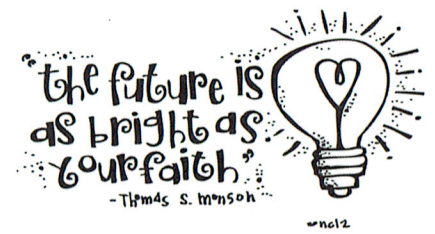 "the future is
as bright as
your faith"
- Thomas S. Monson